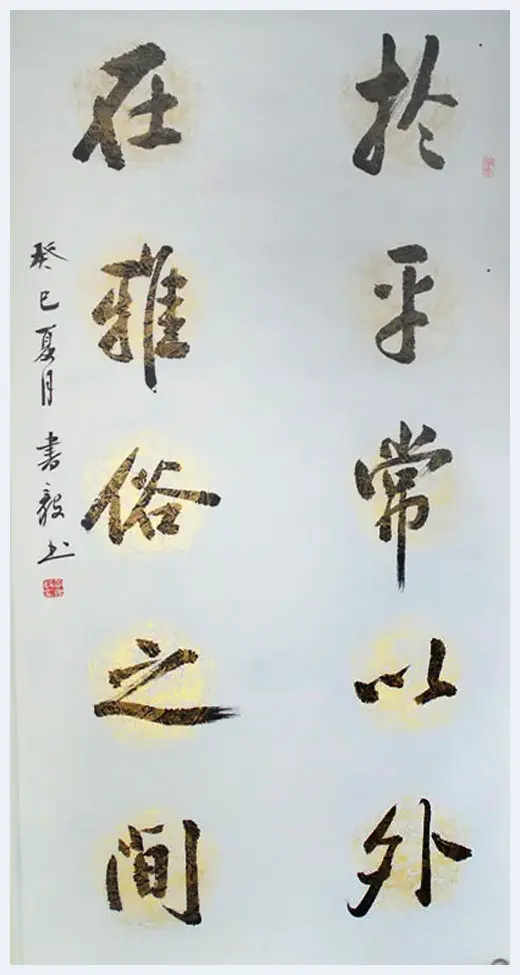 於平常以外
在雅俗之间
癸巳夏月书毅书